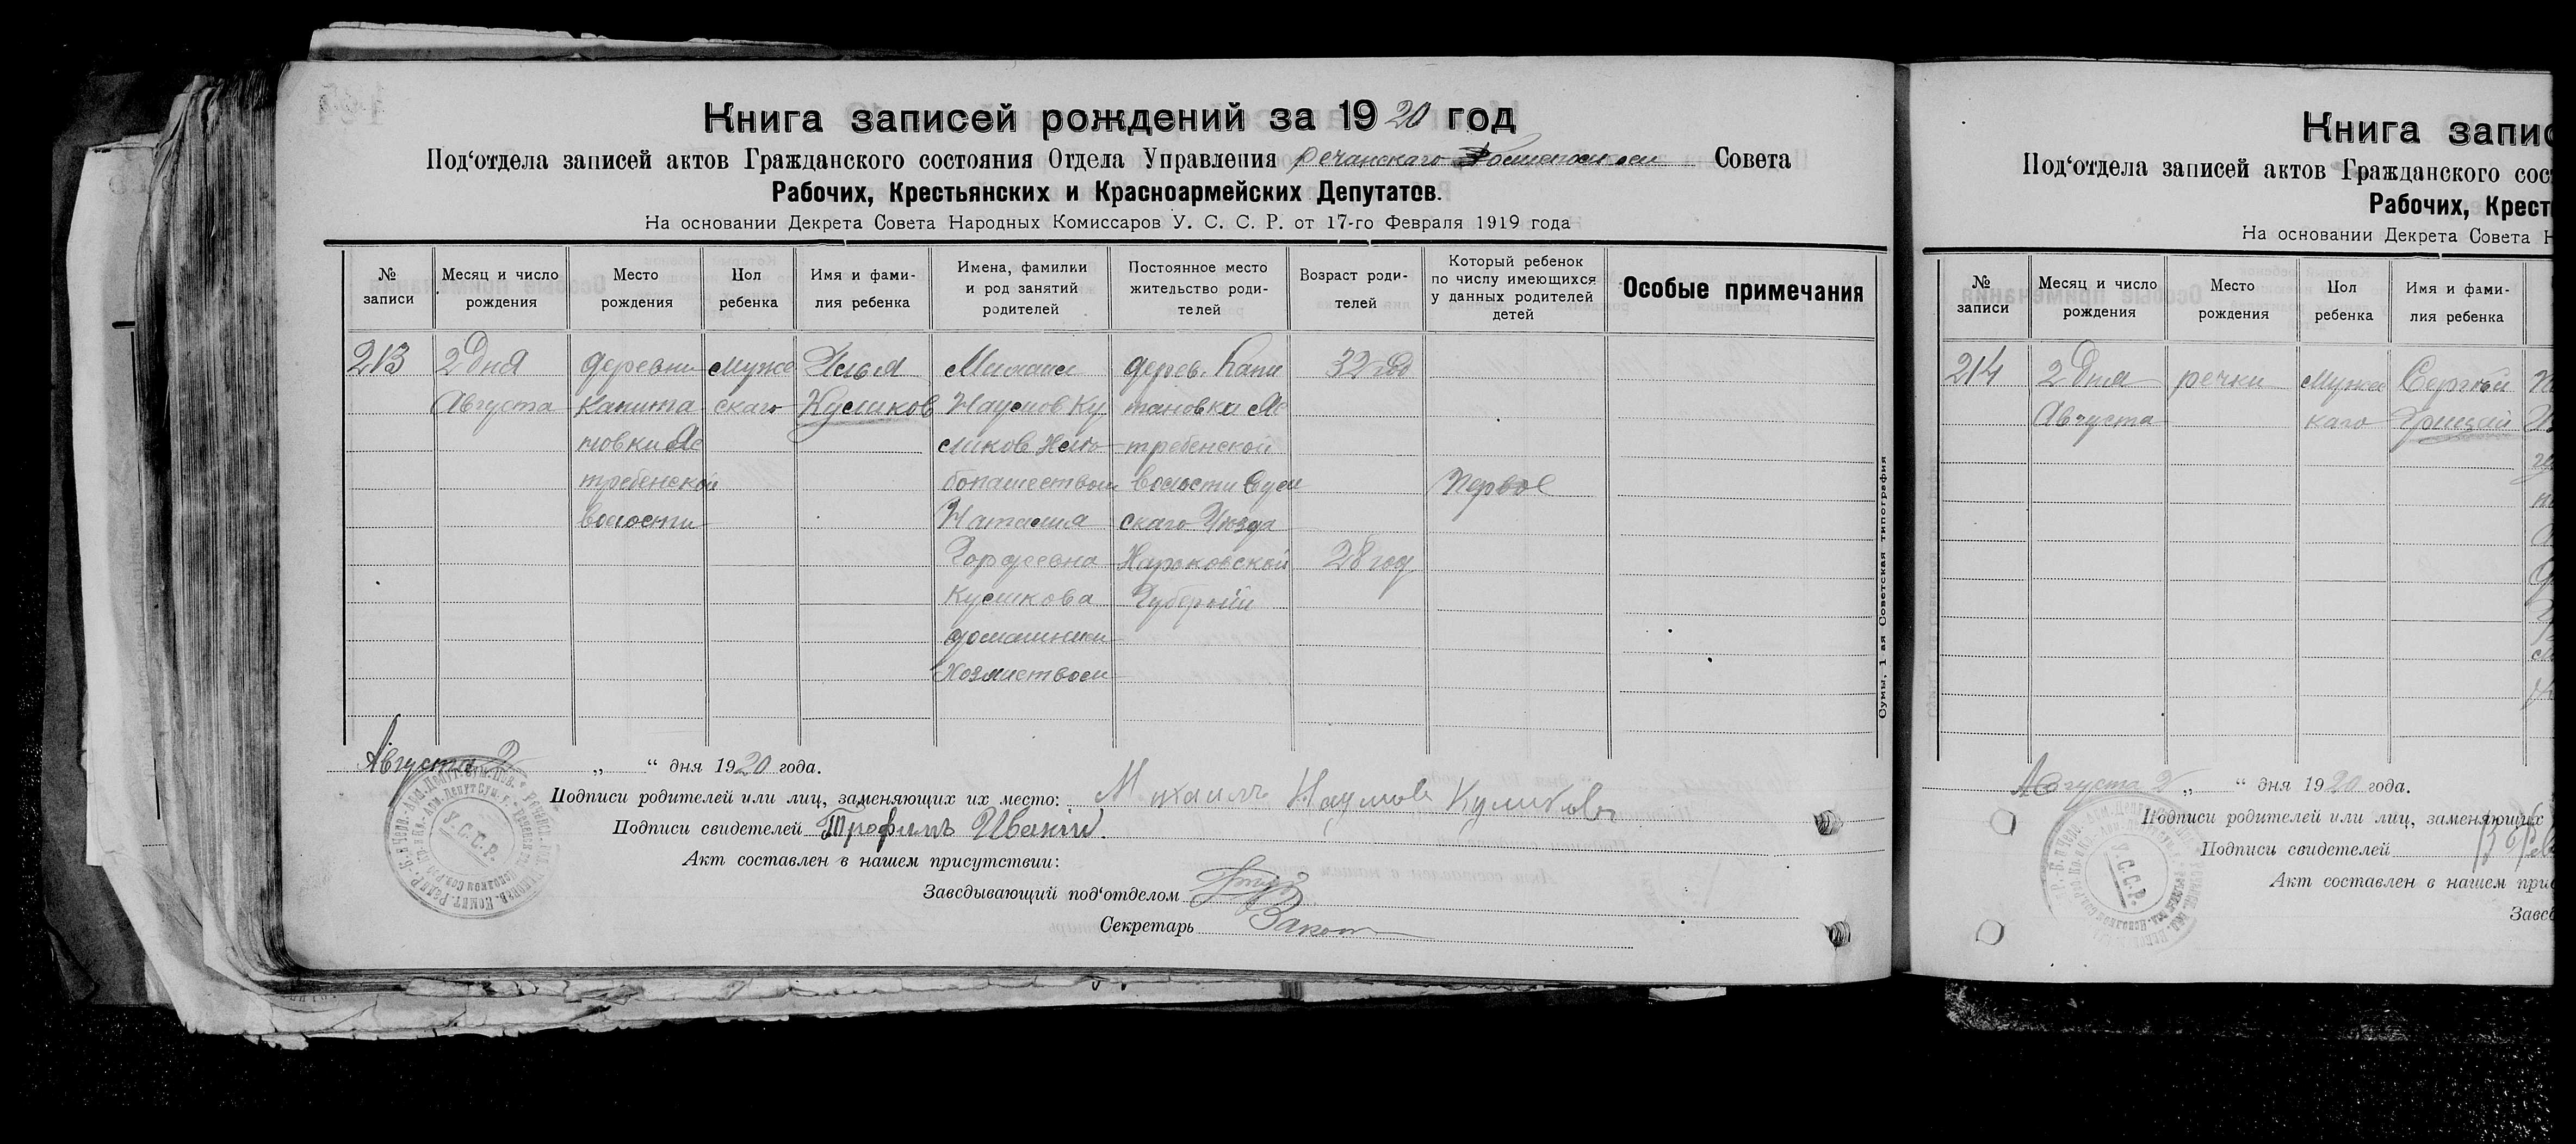 Книга записей рождений за 1920 год
Под‘отдела записей актов Гражданского состояния Отдела Управления речанскаго Совета
Рабочих, Крестьянских и Красноармейских Депутатов.
На основании Декрета Совета Народных Комиссаров У. С. С. Р. от 17-го Февраля 1919 года
№ записи
Месяц и число рождения
Место рождения
Пол ребенка
Имя и фами-
лия ребенка
Имена, фамилии
и род занятий
родителей
Постоянное место
жительство роди-
телей
Возраст роди-
телей
Который ребенок
по числу имеющихся
у данных родителей
детей
Особые примечания
213
2 дня
Августа
деревни
Капита
новки Яс
требенской
волости
Муже
скаго
Илья
Куликов
Михаил
Наумов Ку
ликов Хлебо
бопашеством
Наталия
Гордеевна
Куликова
домашним
Хозяиством
дерев. Капи
тановка Яс
требенской
волости Сум
скаго Уезда
Харьковской
Губернии
32 год
28 год
Первое
Августа 2 „ “ дня 1920 года.
Подписи родителей или лиц, заменяющих их место: Михаилъ Наумовъ Куликовъ
Подписи свидетелей Трофимъ Ивакин.
Акт составлен в нашем присутствии:
Заведывающий под‘отделом
Секретарь
У.С.С.Р.
Сумы, 1-ая Советская типография
Книга запис
Под‘отдела записей актов Гражданского сос
Рабочих, Крест
На основании Декрета Совета Н
№ записи
Месяц и число рождения
Место рождения
Пол ребенка
Имя и фами-
лия ребенка
214
2 дня
Августа
речки
Муже
каго
Сергей
Грицай
Августа 2 „ “ дня 1920 года.
Подписи родителей или лиц, заменяющих
Подписи свидетелей
Акт составлен в нашем прис
Завед
У.С.С.Р.